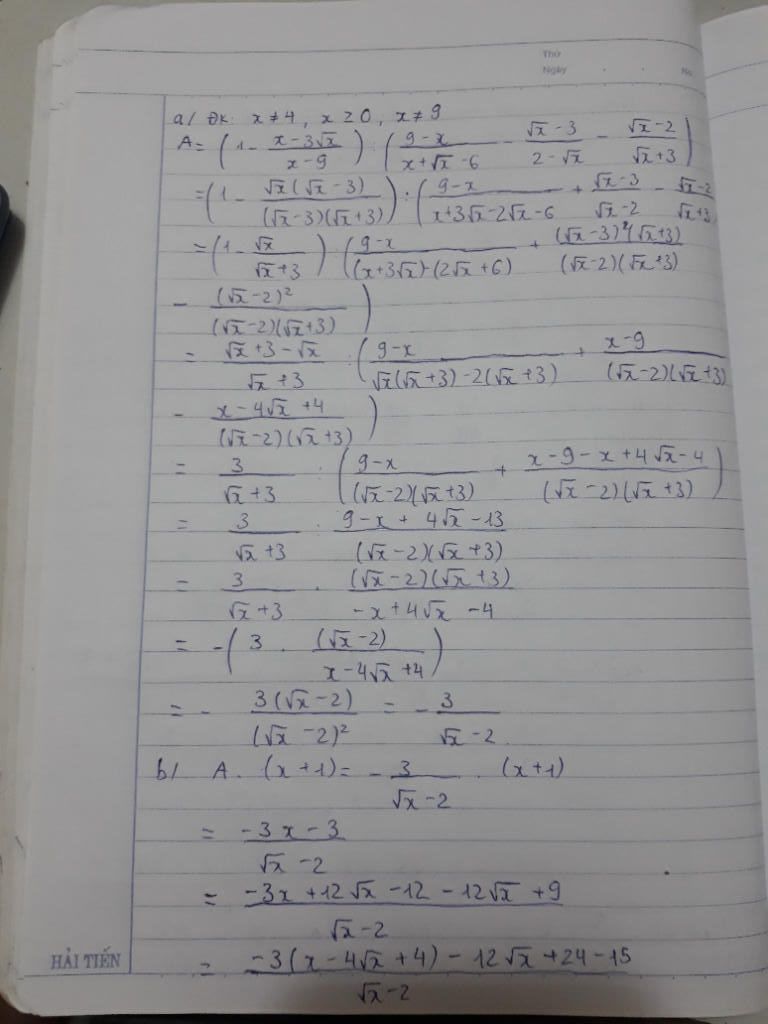 Thứ
Ngày . . No.
a/ ĐK: x ≠ 4, x ≥ 0, x ≠ 9
A = (1 - (x - 3√x)/(x - 9)) : ((9 - x)/(x + √x - 6) - (√x - 3)/(2 - √x) - (√x - 2)/(√x + 3))
= (1 - (√x(√x - 3))/((√x - 3)(√x + 3))) : ((9 - x)/(x + 3√x - 2√x - 6) + (√x - 3)/(√x - 2) - (√x - 2)/(√x + 3)
= (1 - √x/(√x + 3)) : ((9 - x)/((x + 3√x) - (2√x + 6)) + ((√x - 3)(√x + 3))/((√x - 2)(√x + 3))
- (√x - 2)²/((√x - 2)(√x + 3)))
= (√x + 3 - √x)/(√x + 3) : ((9 - x)/(√x(√x + 3) - 2(√x + 3)) + (x - 9)/((√x - 2)(√x + 3))
- (x - 4√x + 4)/((√x - 2)(√x + 3)))
= 3/(√x + 3) : ((9 - x)/((√x - 2)(√x + 3)) + (x - 9 - x + 4√x - 4)/((√x - 2)(√x + 3)))
= 3/(√x + 3) : (9 - x + 4√x - 13)/((√x - 2)(√x + 3))
= 3/(√x + 3) . ((√x - 2)(√x + 3))/(-x + 4√x - 4)
= -(3 . (√x - 2)/(x - 4√x + 4))
= - 3(√x - 2)/(√x - 2)² = - 3/(√x - 2)
b/ A . (x + 1) = - 3/(√x - 2) . (x + 1)
= (-3x - 3)/(√x - 2)
= (-3x + 12√x - 12 - 12√x + 9)/(√x - 2)
= (-3(x - 4√x + 4) - 12√x + 24 - 15)/(√x - 2)
HẢI TIẾN